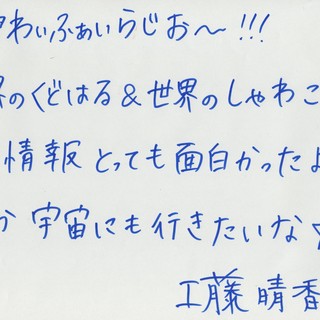 わいふぁいらじお〜!!!
のくどはる&世界のしゃわこ
情報とっても面白かったよ
か 宇宙にも行きたいな☆
工藤晴香